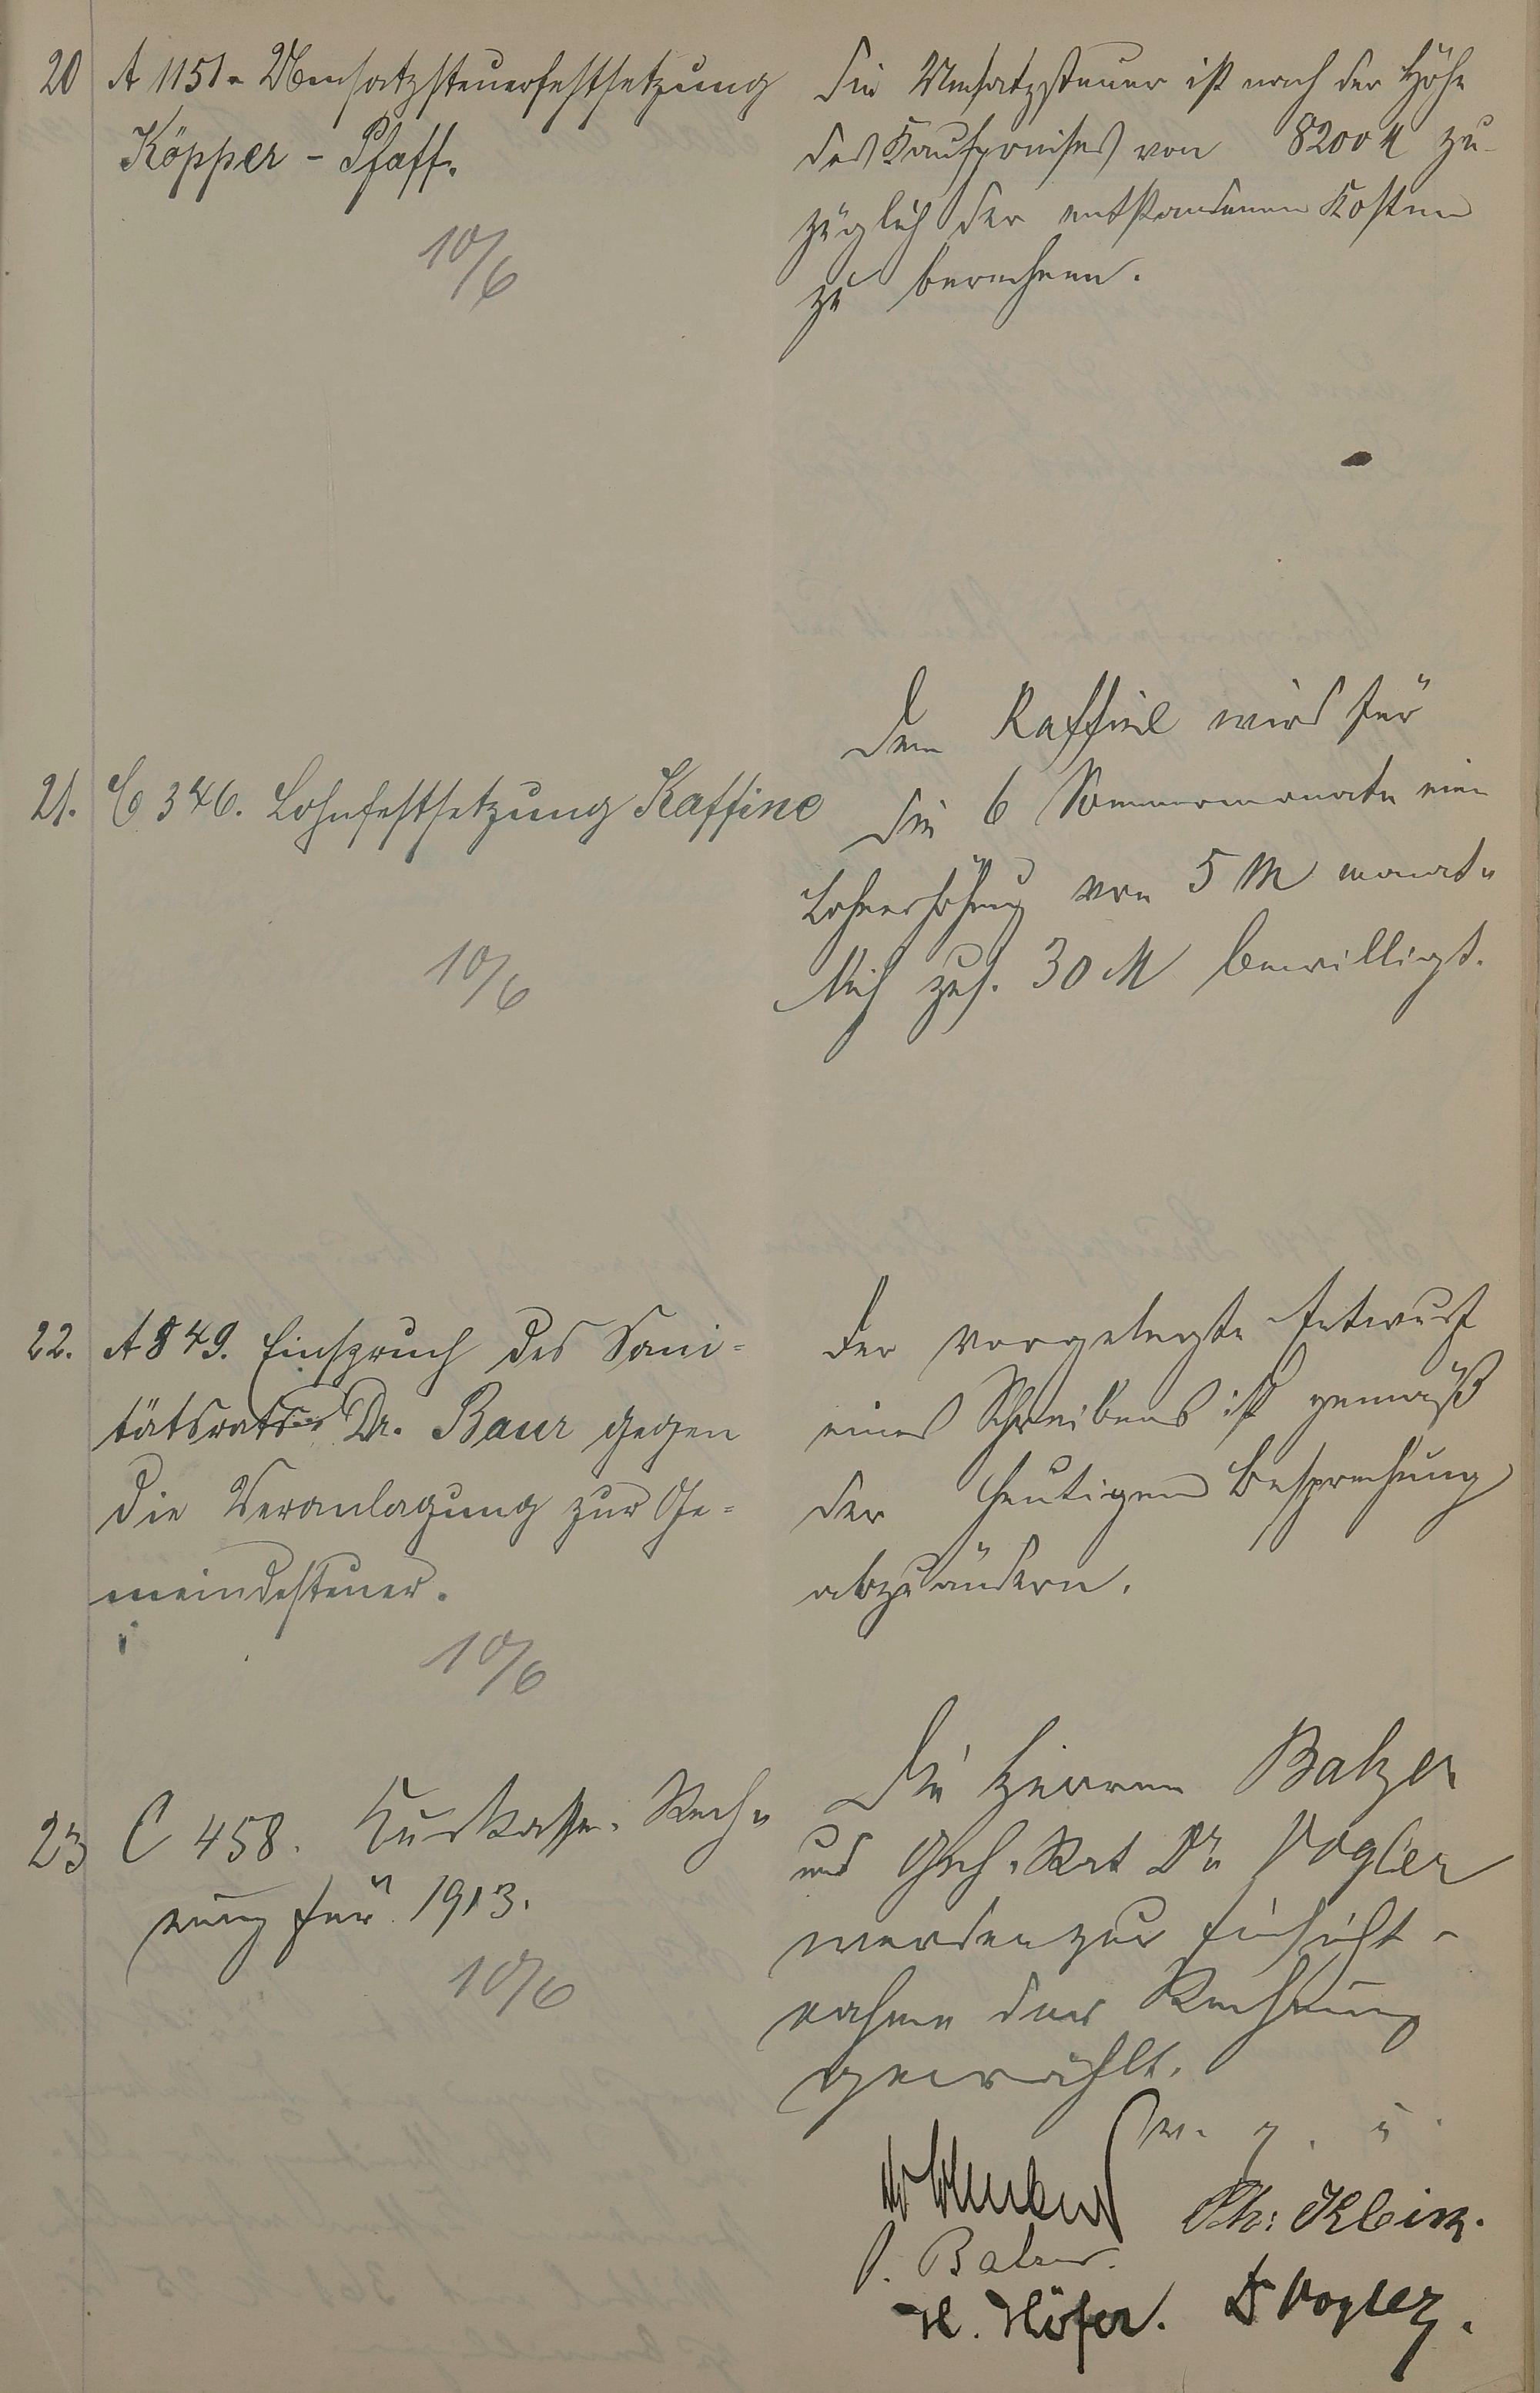 20 A 1151. Umsatzsteuerfestsetzung
Köpper - Pfaff.
10/6
Die Umsatzsteuer ist nach der Höhe
des Kaufpreises von 8200 M zu-
züglich der entstandenen Kosten
zu berechnen.
21. C 346. Lohnfestsetzung Kaffine
10/6
Dem Kaffine wird für
die 6 Sommermonate eine
Lohnerhöhung von 5 M monat-
lich zus. 30 M bewilligt.
22. A 849. Einspruch des Sani-
tätsrats Dr. Baur gegen
die Veranlagung zur Ge-
meindesteuer.
10/6
Der vorgelegte Entwurf
eines Schreibens ist gemäß
der heutigen Besprechung
abzuändern.
23 C 458. Kurkasse-Rech-
nung für 1913.
10/6
Die Herren Balzer
und Geh. Rat Dr. Vogler
werden zur Einsicht-
nahme der Rechnung
gewählt.
v. g. u.
Ph: Klein.
P. Balzer.
H. Höfer. Dr Vogler.